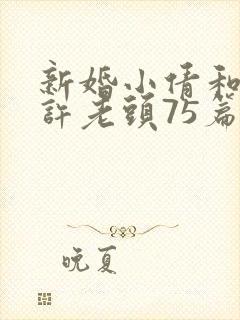 新婚小倩和
許老頭75篇
晚夏